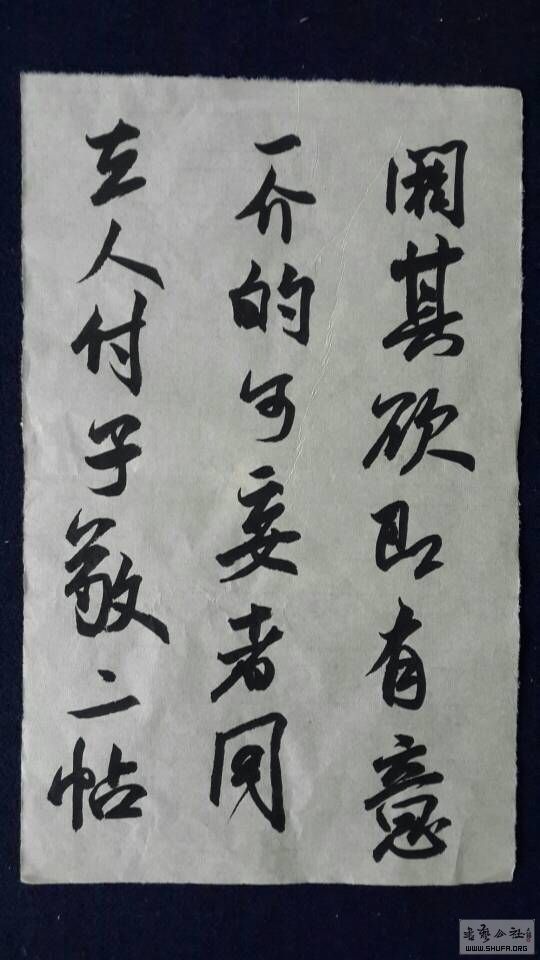 閱其欲即有意
一介的可委者同
去人付子敬二帖
书艺公社
WWW.SHUFA.ORG